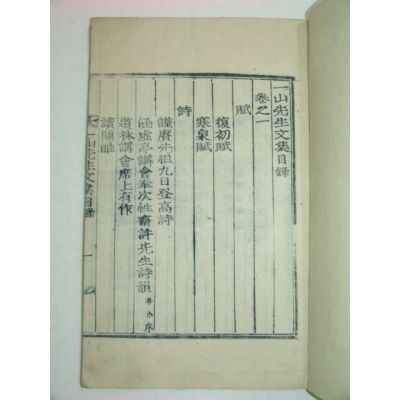 一山先生文集目錄
卷之一
賦
復初賦
寒泉賦
詩
謹賡先祖九日登高詩
涵虛亭講會忝次性齋許先生詩韻并小序
道林講會席上有作
讀關雎
一山先生文集目錄 一